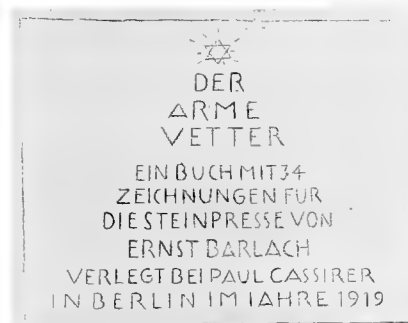 DER
ARME
VETTER
EIN BUCH MIT 34
ZEICHNUNGEN FUR
DIE STEINPRESSE VON
ERNST BARLACH
VERLEGT BEI PAUL CASSIRER
IN BERLIN IM IAHRE 1919